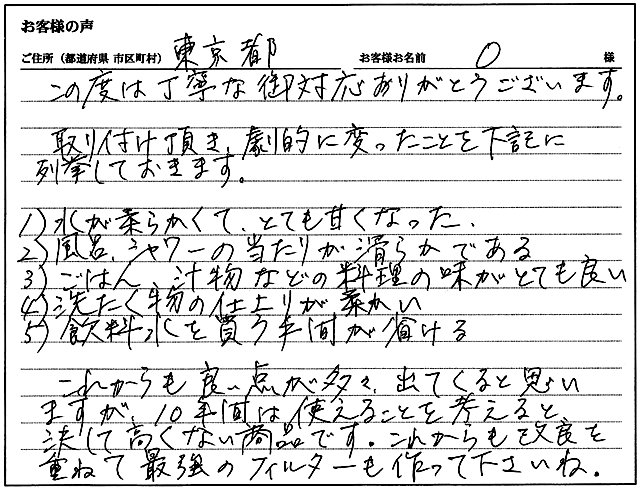 お客様の声
ご住所（都道府県 市区町村） 東京都 お客様お名前 O 様
この度は丁寧な御対応ありがとうございます。
取り付け頂き、劇的に変ったことを下記に
列挙しておきます。
1) 水が柔らかくて、とても甘くなった.
2) 風呂、シャワーの当たりが滑らかである
3) ごはん、汁物などの料理の味がとても良い
4) 洗たく物の仕上りが柔かい
5) 飲料水を買う手間が省ける
これからも良い点が多々、出てくると思い
ますが、10年間は使えることを考えると、
決して高くない商品です。これからも改良を
重ねて最強のフィルターも作って下さいね.